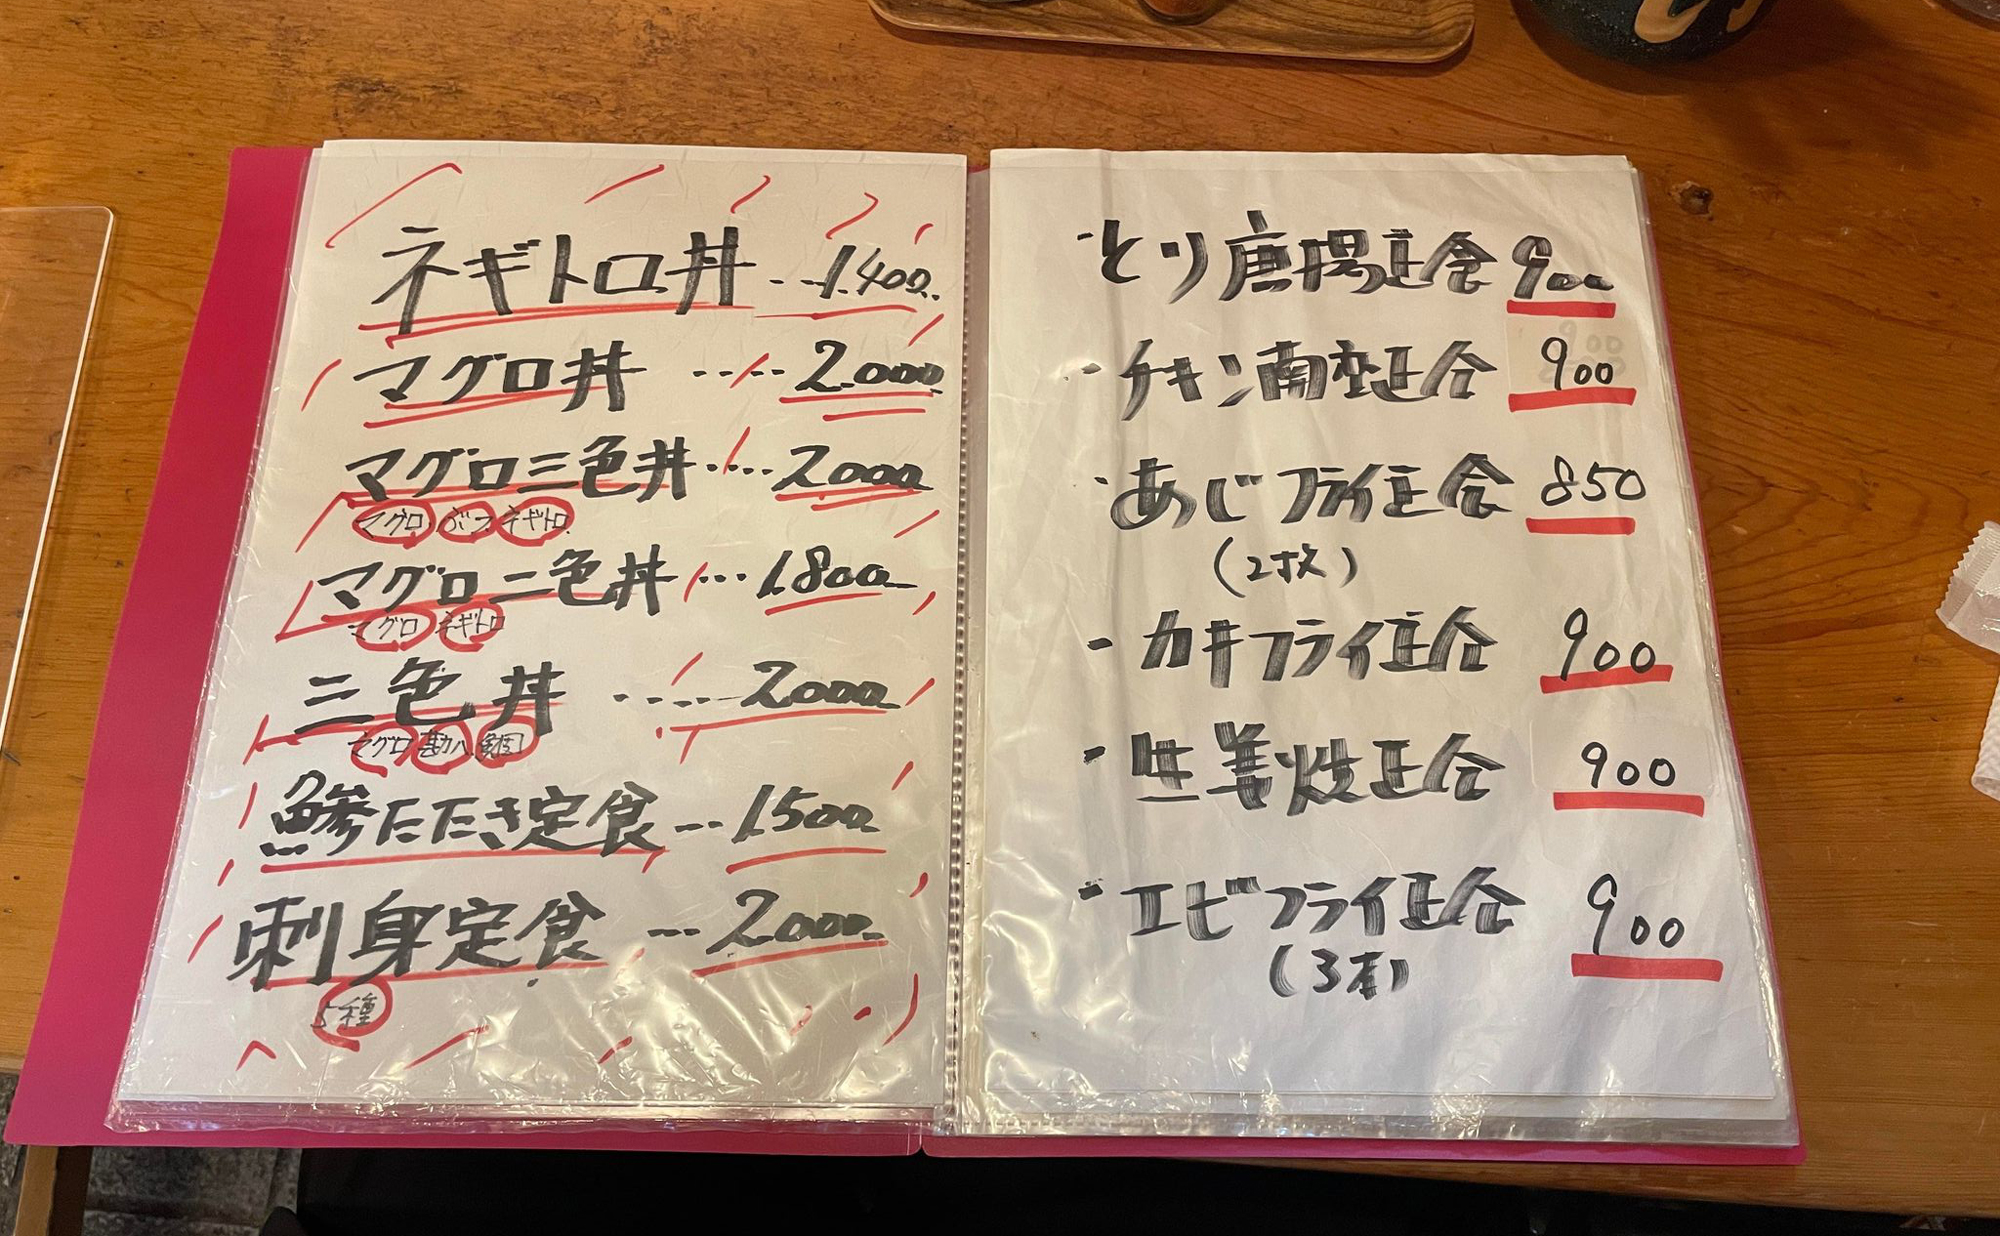 ネギトロ丼 ... 1.400
マグロ丼 .... 2.000
マグロ三色丼 .... 2000
マグロ ぶつ ネギトロ
マグロ二色丼 ... 1.800
マグロ ネギトロ
三色丼 ..... 2000
マグロ 勘八 鯛
鯵たたき定食 ... 1.500
刺身定食 ... 2.000
5種
・とり唐揚定食 900
・チキン南蛮定食 900
・あじフライ定食 850
(2枚)
・カキフライ定食 900
・生姜焼定食 900
・エビフライ定食 900
(3本)